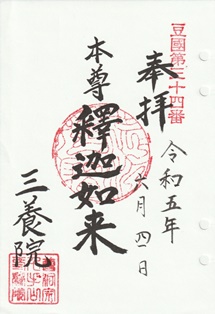 豆國第三十四番
奉拝
令和五年
六月四日
本尊
釋迦如来
三養院